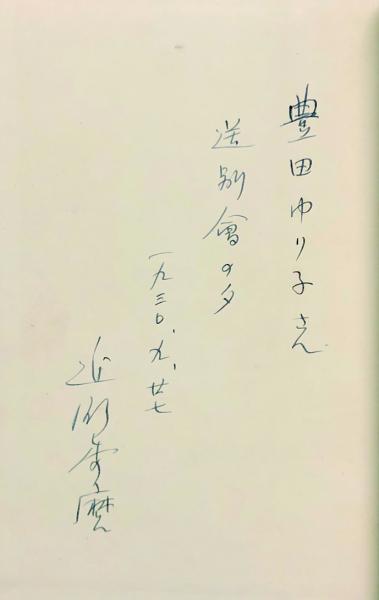 豊田ゆり子さん
送別會の夕
一九三〇、九、廿七
近衛秀麿